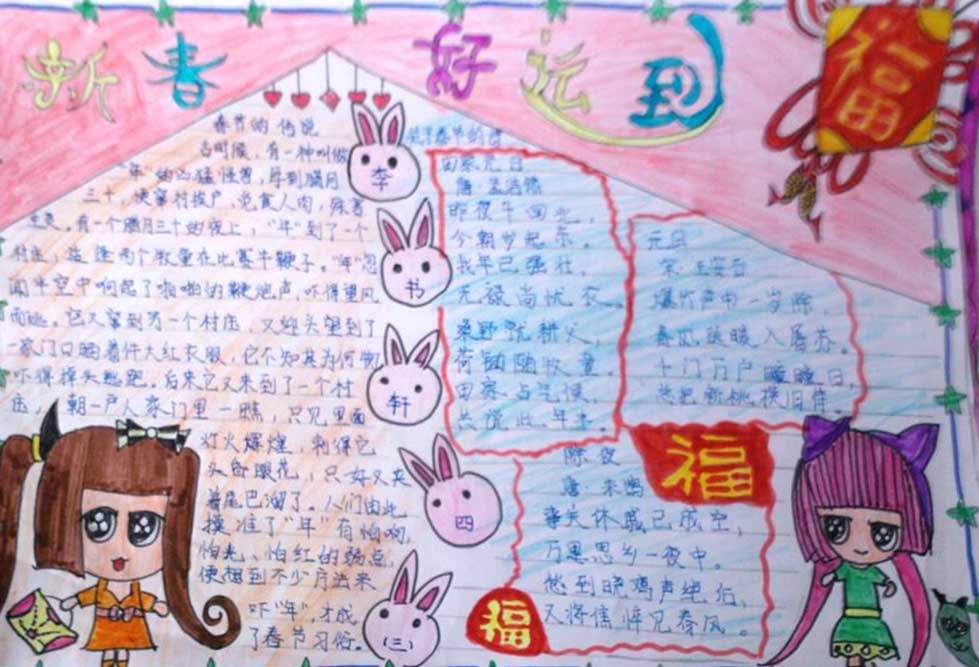 新春 好运到
福
春节的传说
古时候，有一种叫做
"年"的凶猛怪兽，每到腊月
三十，便窜村挨户，觅食人肉，残害
生灵。有一个腊月三十的晚上，"年"到了一个
村庄，适逢两个牧童在比赛牛鞭子。"年"忽
闻半空中响起了啪啪的鞭炮声，吓得望风
而逃。它又窜到另一个村庄，又迎头望到了
一家门口晒着件大红衣服，它不知其为何物，
吓得掉头逃跑。后来它又来到了一个村
庄，朝一户人家门里一瞧，只见里面
灯火辉煌，刺得它
头昏眼花，只好又夹
着尾巴溜了。人们由此
摸准了"年"有怕响，
怕光，怕红的弱点，
便想到不少方法来
吓"年"，才成
了春节习俗。
李
书
轩
四
(三)
春节的诗
田家元日
唐·孟浩然
昨夜斗回北，
今朝岁起东。
我年已强壮，
无禄尚忧农。
桑野就耕父，
荷锄随牧童。
田家占气候，
共说此年丰。
元日
宋·王安石
爆竹声中一岁除，
春风送暖入屠苏。
千门万户曈曈日，
总把新桃换旧符。
福
除夜
唐·来鹄
事关休戚已成空，
万里思乡一夜中。
愁到晓鸡声绝后，
又将憔悴见春风。
福